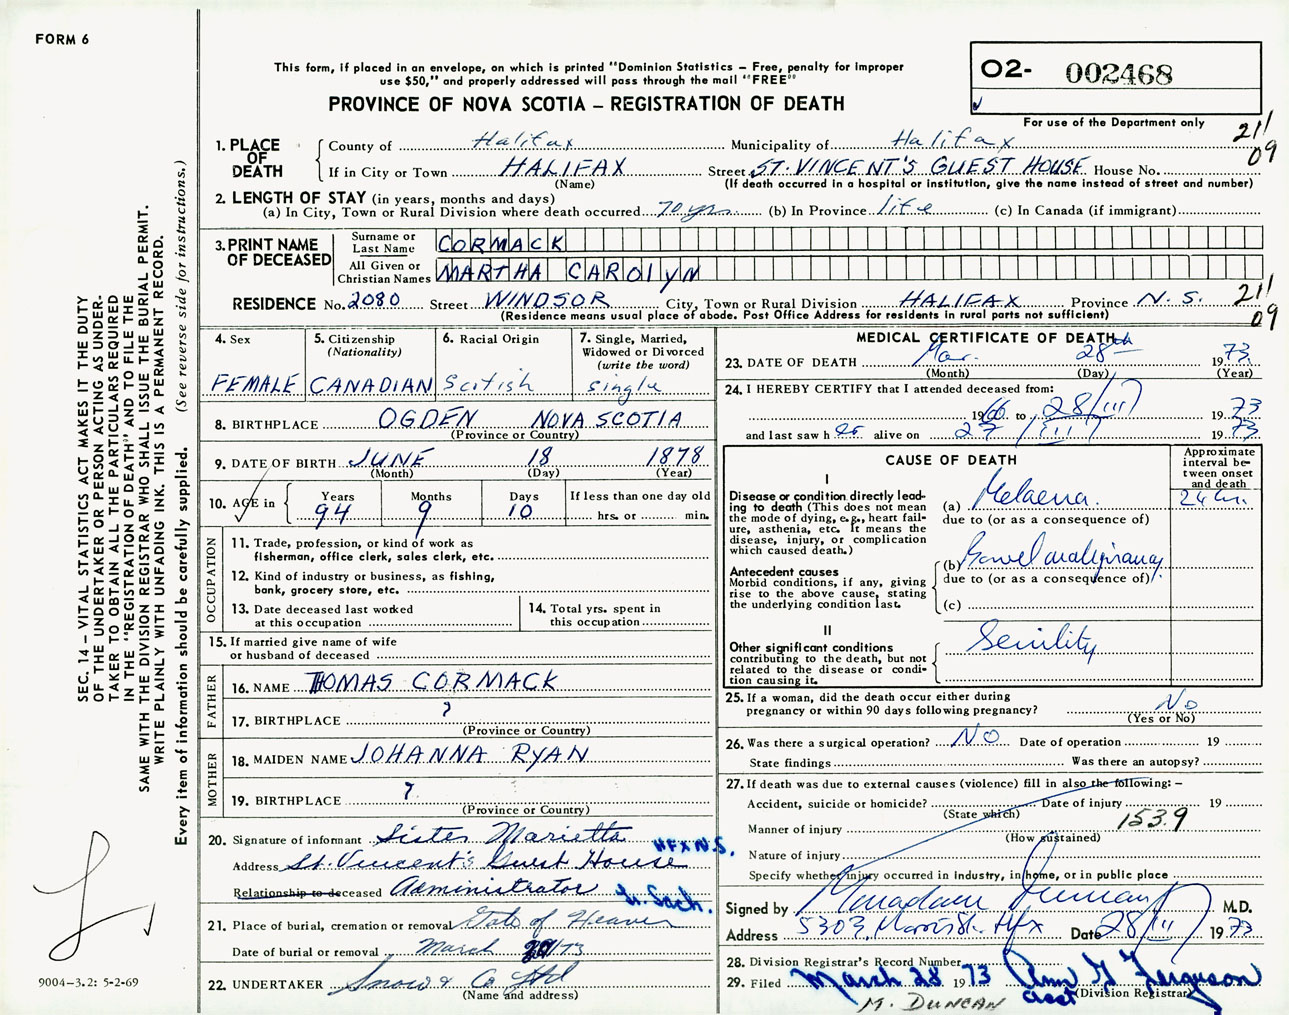 FORM 6
This form, if placed in an envelope, on which is printed "Dominion Statistics – Free, penalty for improper
use $50," and properly addressed will pass through the mail "FREE"
PROVINCE OF NOVA SCOTIA – REGISTRATION OF DEATH
O2- 002468
For use of the Department only
211
09
1. PLACE OF DEATH
County of Halifax Municipality of Halifax
If in City or Town HALIFAX Street ST. VINCENT'S GUEST HOUSE House No.
(Name) (If death occurred in a hospital or institution, give the name instead of street and number)
2. LENGTH OF STAY (in years, months and days)
(a) In City, Town or Rural Division where death occurred 70 yrs (b) In Province life (c) In Canada (if immigrant)
3. PRINT NAME OF DECEASED
Surname or Last Name CORMACK
All Given or Christian Names MARTHA CAROlYN
RESIDENCE No. 2080 Street WINDSOR City, Town or Rural Division HALIFAX Province N.S.
(Residence means usual place of abode. Post Office Address for residents in rural parts not sufficient)
211
09
4. Sex FEMALE
5. Citizenship (Nationality) CANADIAN
6. Racial Origin Scotish
7. Single, Married, Widowed or Divorced (write the word) single
8. BIRTHPLACE OGDEN NOVA SCOTIA
(Province or Country)
9. DATE OF BIRTH JUNE 18 1878
(Month) (Day) (Year)
10. AGE in Years 94 Months 9 Days 10 If less than one day old hrs. or min.
OCCUPATION
11. Trade, profession, or kind of work as
fisherman, office clerk, sales clerk, etc.
12. Kind of industry or business, as fishing,
bank, grocery store, etc.
13. Date deceased last worked
at this occupation
14. Total yrs. spent in
this occupation
15. If married give name of wife
or husband of deceased
FATHER
16. NAME THOMAS CORMACK
17. BIRTHPLACE ?
(Province or Country)
MOTHER
18. MAIDEN NAME JOHANNA RYAN
19. BIRTHPLACE ?
(Province or Country)
20. Signature of informant Sister Marietta
HFX N.S.
Address St. Vincent's Guest House
Relationship to deceased Administrator
21. Place of burial, cremation or removal Gate of Heaven
Date of burial or removal March /73
22. UNDERTAKER Snow & Co Ltd
(Name and address)
MEDICAL CERTIFICATE OF DEATH
23. DATE OF DEATH Mar. 28th 1973
(Month) (Day) (Year)
24. I HEREBY CERTIFY that I attended deceased from:
1966 to 28/III 1973
and last saw her alive on 27/III 1973
CAUSE OF DEATH
Approximate interval between onset and death
I
Disease or condition directly leading to death (This does not mean the mode of dying, e.g., heart failure, asthenia, etc. It means the disease, injury, or complication which caused death.)
(a) Melaena. 24 hr.
due to (or as a consequence of)
Antecedent causes
Morbid conditions, if any, giving rise to the above cause, stating the underlying condition last.
(b) Bowel malignancy
due to (or as a consequence of)
(c)
II
Other significant conditions contributing to the death, but not related to the disease or condition causing it.
Senility
25. If a woman, did the death occur either during
pregnancy or within 90 days following pregnancy? No
(Yes or No)
26. Was there a surgical operation? NO Date of operation 19
State findings Was there an autopsy?
27. If death was due to external causes (violence) fill in also the following: –
Accident, suicide or homicide? Date of injury 19
(State which)
Manner of injury 1539
(How sustained)
Nature of injury
Specify whether injury occurred in Industry, in home, or in public place
Signed by Duncan M.D.
Address 5303, Morris St. Hfx Date 28/III 1973
28. Division Registrar's Record Number
29. Filed March 28 1973 Ann G Ferguson
(Division Registrar)
M. DUNCAN
SEC. 14 – VITAL STATISTICS ACT MAKES IT THE DUTY
OF THE UNDERTAKER OR PERSON ACTING AS UNDER-
TAKER TO OBTAIN ALL THE PARTICULARS REQUIRED
IN THE "REGISTRATION OF DEATH" AND TO FILE THE
SAME WITH THE DIVISION REGISTRAR WHO SHALL ISSUE THE BURIAL PERMIT.
WRITE PLAINLY WITH UNFADING INK. THIS IS A PERMANENT RECORD.
Every item of information should be carefully supplied. (See reverse side for instructions.)
9004–3.2: 5-2-69